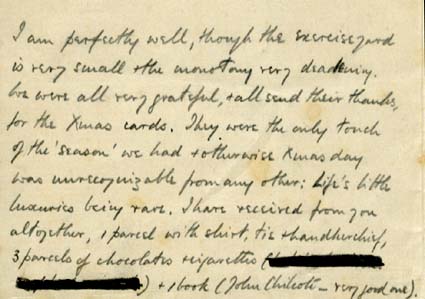 I am perfectly well, though the exercise yard
is very small + the monotony very deadening.
We were all very grateful, + all send their thanks,
for the Xmas cards. They were the only touch
of the 'season' we had + otherwise Xmas day
was unrecognizable from any other: Life's little
luxuries being rare. I have received from you
altogether, 1 parcel with shirt, tie + handkerchief,
3 parcels of chocolates + cigarettes (
) + 1 book (John Chilcote – very good one).